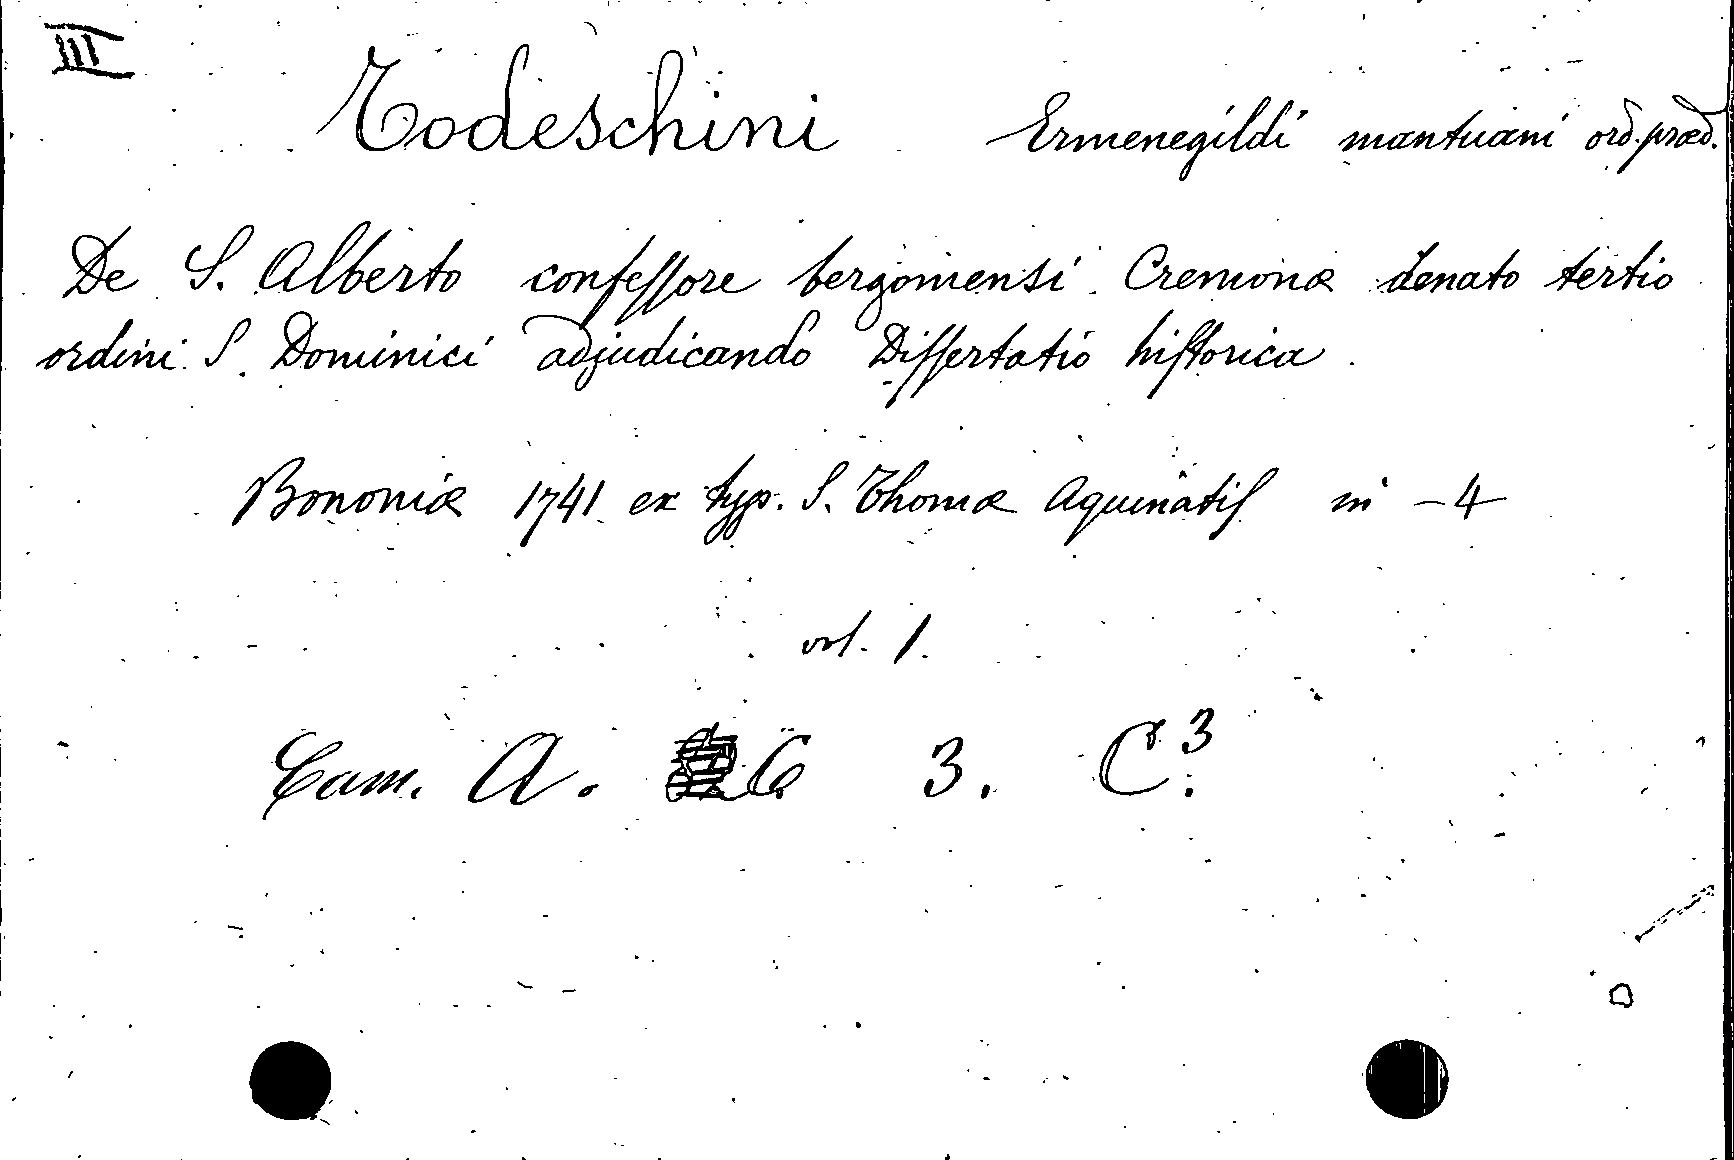 III
Todeschini Ermenegildi mantuani ord. præd.
De S. Alberto confessore bergomensi Cremonæ denato tertio
ordini S. Dominici adjudicando Dissertatio historica.
Bononiæ 1741 ex typ. S. Thomæ Aquinatis in -4
vol. 1.
Cam. A. C 3. C.³